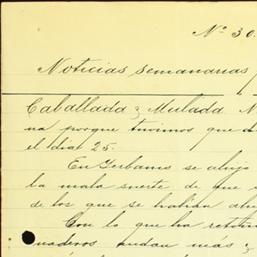 Nº 30.
Noticias semanarias
Caballada y Mulada. N
na porque tuvimos que
el dia 25.
En Gerbanis se ahijo
la mala suerte de que
de los que se habian ahi
Con lo que ha retoñ
cuaderos andan mas